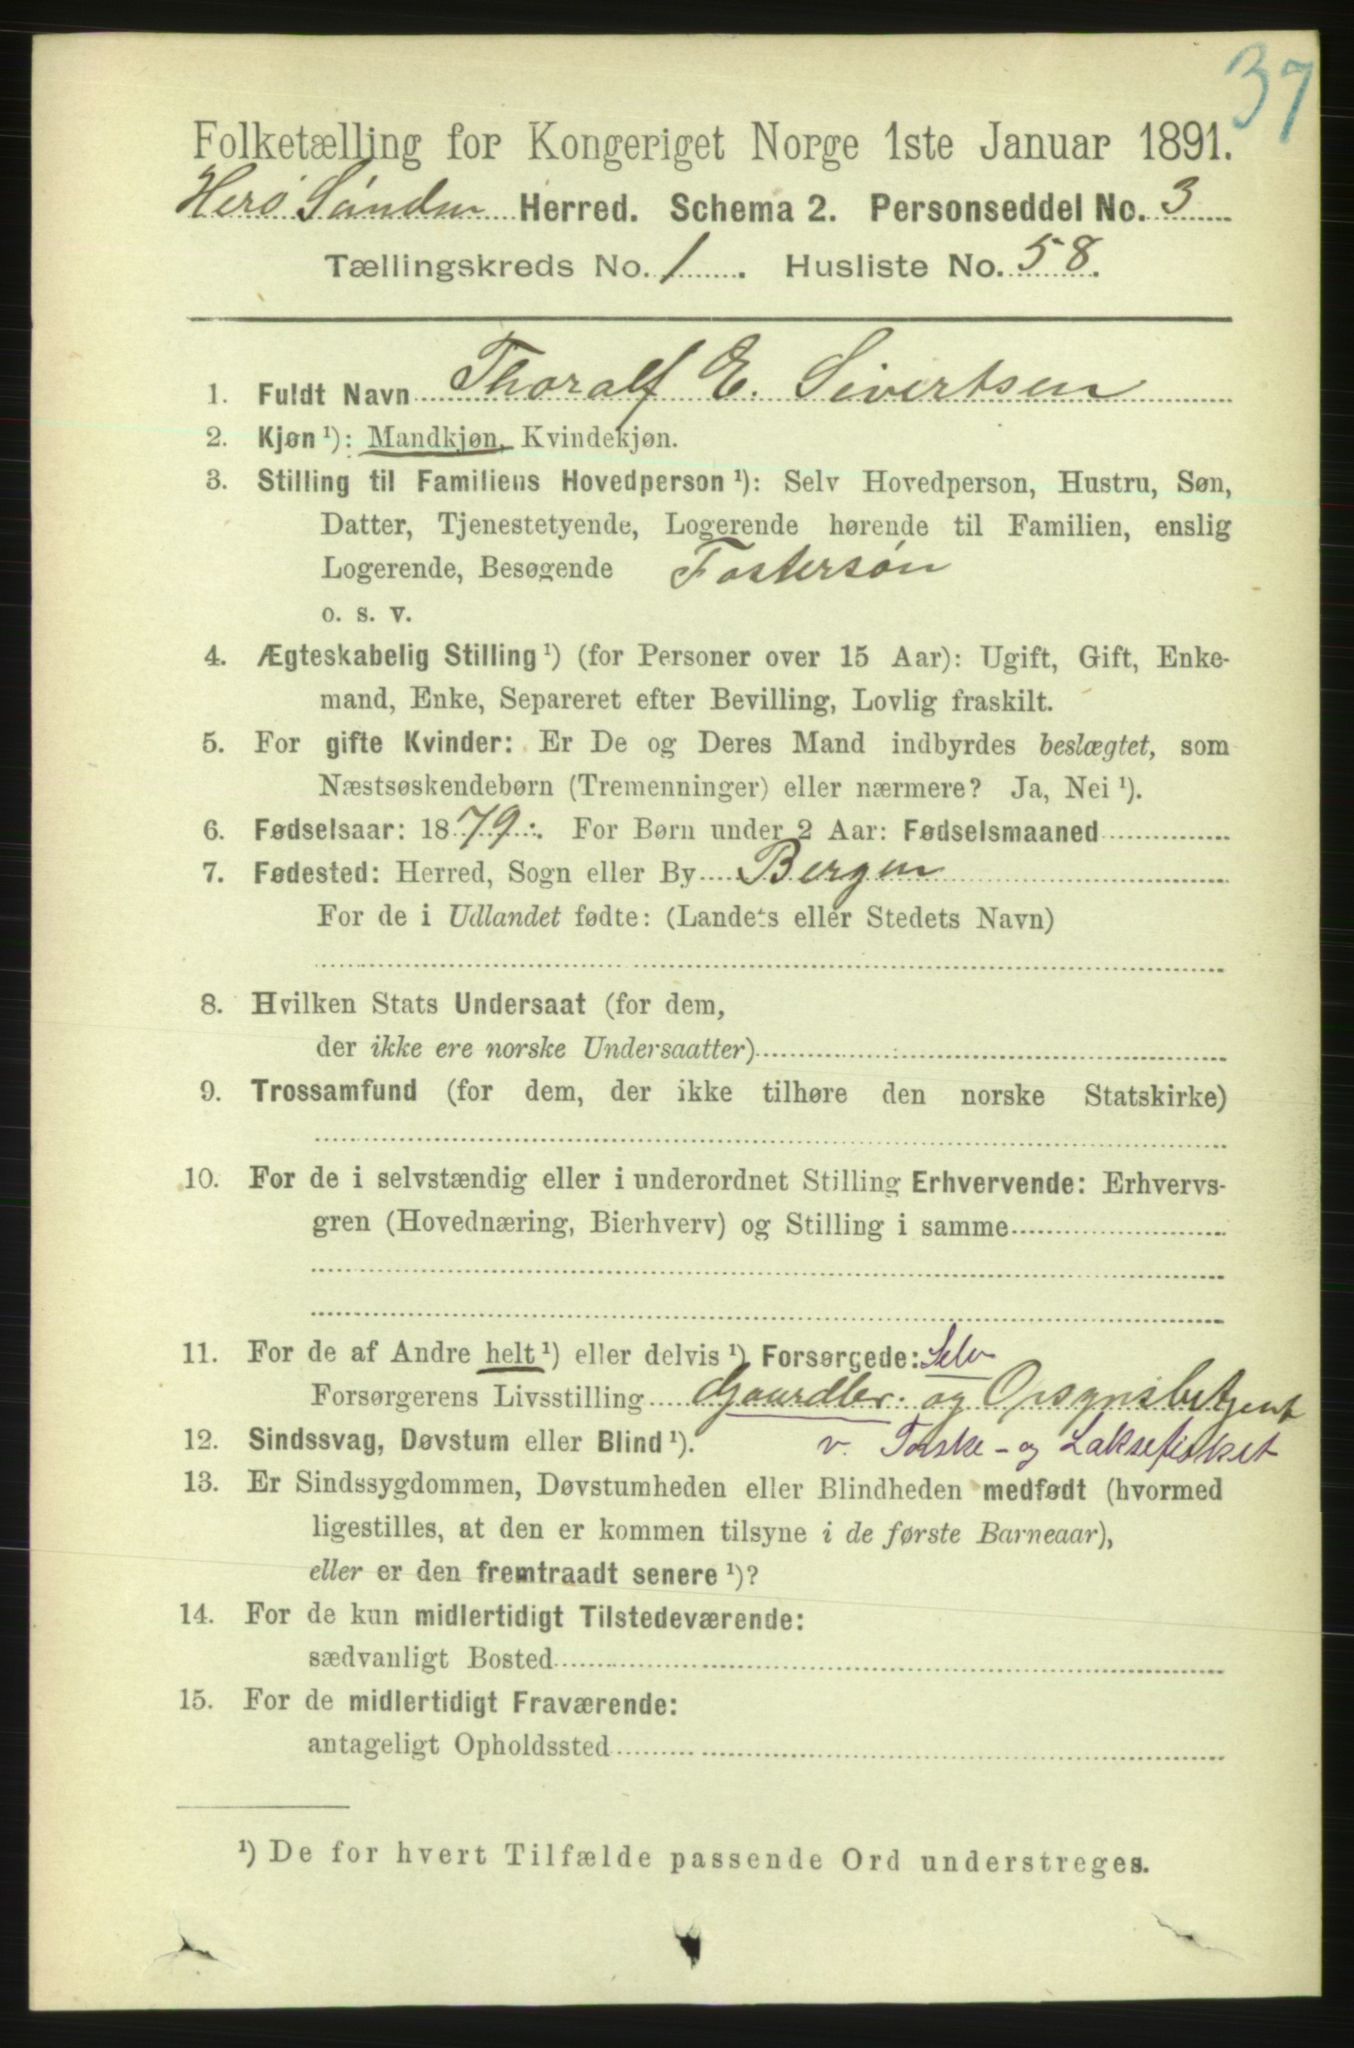 37
Folketælling for Kongeriget Norge 1ste Januar 1891.
Herø Sønden Herred. Schema 2. Personseddel No. 3
Tællingskreds No. 1. Husliste No. 58.
1. Fuldt Navn Thoralf E. Sivertsen
2. Kjøn ¹): Mandkjøn, Kvindekjøn.
3. Stilling til Familiens Hovedperson ¹): Selv Hovedperson, Hustru, Søn,
Datter, Tjenestetyende, Logerende hørende til Familien, enslig
Logerende, Besøgende Fostersøn
o. s. v.
4. Ægteskabelig Stilling ¹) (for Personer over 15 Aar): Ugift, Gift, Enke-
mand, Enke, Separeret efter Bevilling, Lovlig fraskilt.
5. For gifte Kvinder: Er De og Deres Mand indbyrdes beslægtet, som
Næstsøskendebørn (Tremenninger) eller nærmere? Ja, Nei ¹).
6. Fødselsaar: 1879. For Børn under 2 Aar: Fødselsmaaned
7. Fødested: Herred, Sogn eller By Bergen
For de i Udlandet fødte: (Landets eller Stedets Navn)
8. Hvilken Stats Undersaat (for dem,
der ikke ere norske Undersaatter)
9. Trossamfund (for dem, der ikke tilhøre den norske Statskirke)
10. For de i selvstændig eller i underordnet Stilling Erhvervende: Erhvervs-
gren (Hovednæring, Bierhverv) og Stilling i samme
11. For de af Andre helt ¹) eller delvis ¹) Forsørgede: Selv
Forsørgerens Livsstilling Gaardbr. og Opsynsbetjent
12. Sindssvag, Døvstum eller Blind ¹). v. Torske- og Laksefisket
13. Er Sindssygdommen, Døvstumheden eller Blindheden medfødt (hvormed
ligestilles, at den er kommen tilsyne i de første Barneaar),
eller er den fremtraadt senere ¹)?
14. For de kun midlertidigt Tilstedeværende:
sædvanligt Bosted
15. For de midlertidigt Fraværende:
antageligt Opholdssted
¹) De for hvert Tilfælde passende Ord understreges.